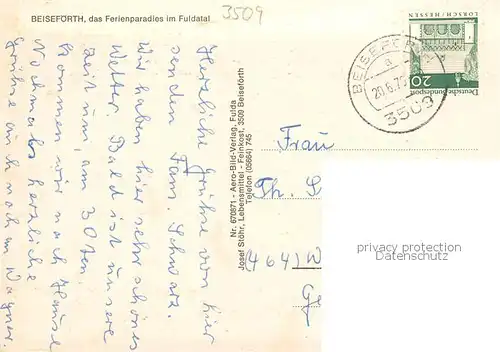 BEISEFÖRTH, das Ferienparadies im Fuldatal
3509
Herzliche Grüße von hier
senden Fam. Schwarz.
Wir haben hier sehr schönes
Wetter. Bald ist unsere
Zeit um, am 30ten
kommen wir nach Hause
Nochmals herzliche
Grüße auch nach Wagner.
Nr. 670871 - Aero-Bild-Verlag, Fulda
Josef Stöhr, Lebensmittel - Feinkost, 3509 Beiseförth
Telefon (05664) 745
LORSCH/HESSEN
Deutsche Bundespost
20
BEISEFÖRTH
a
3509
Frau
Th. S
4641 W
Ge
privacy protection
Datenschutz